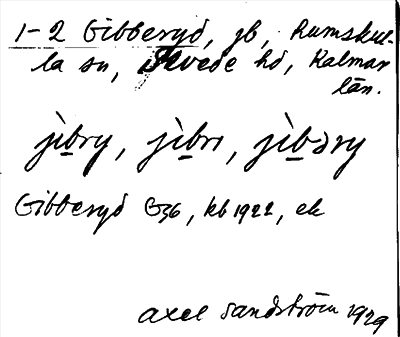 1-2 Gibberyd, gb, Rumskul-
la sn, Sevede hd, Kalmar
län.
jìbry, jìbrı, jìbəry
Gibberyd G36, kb 1922, ek
Axel Sandström 1929